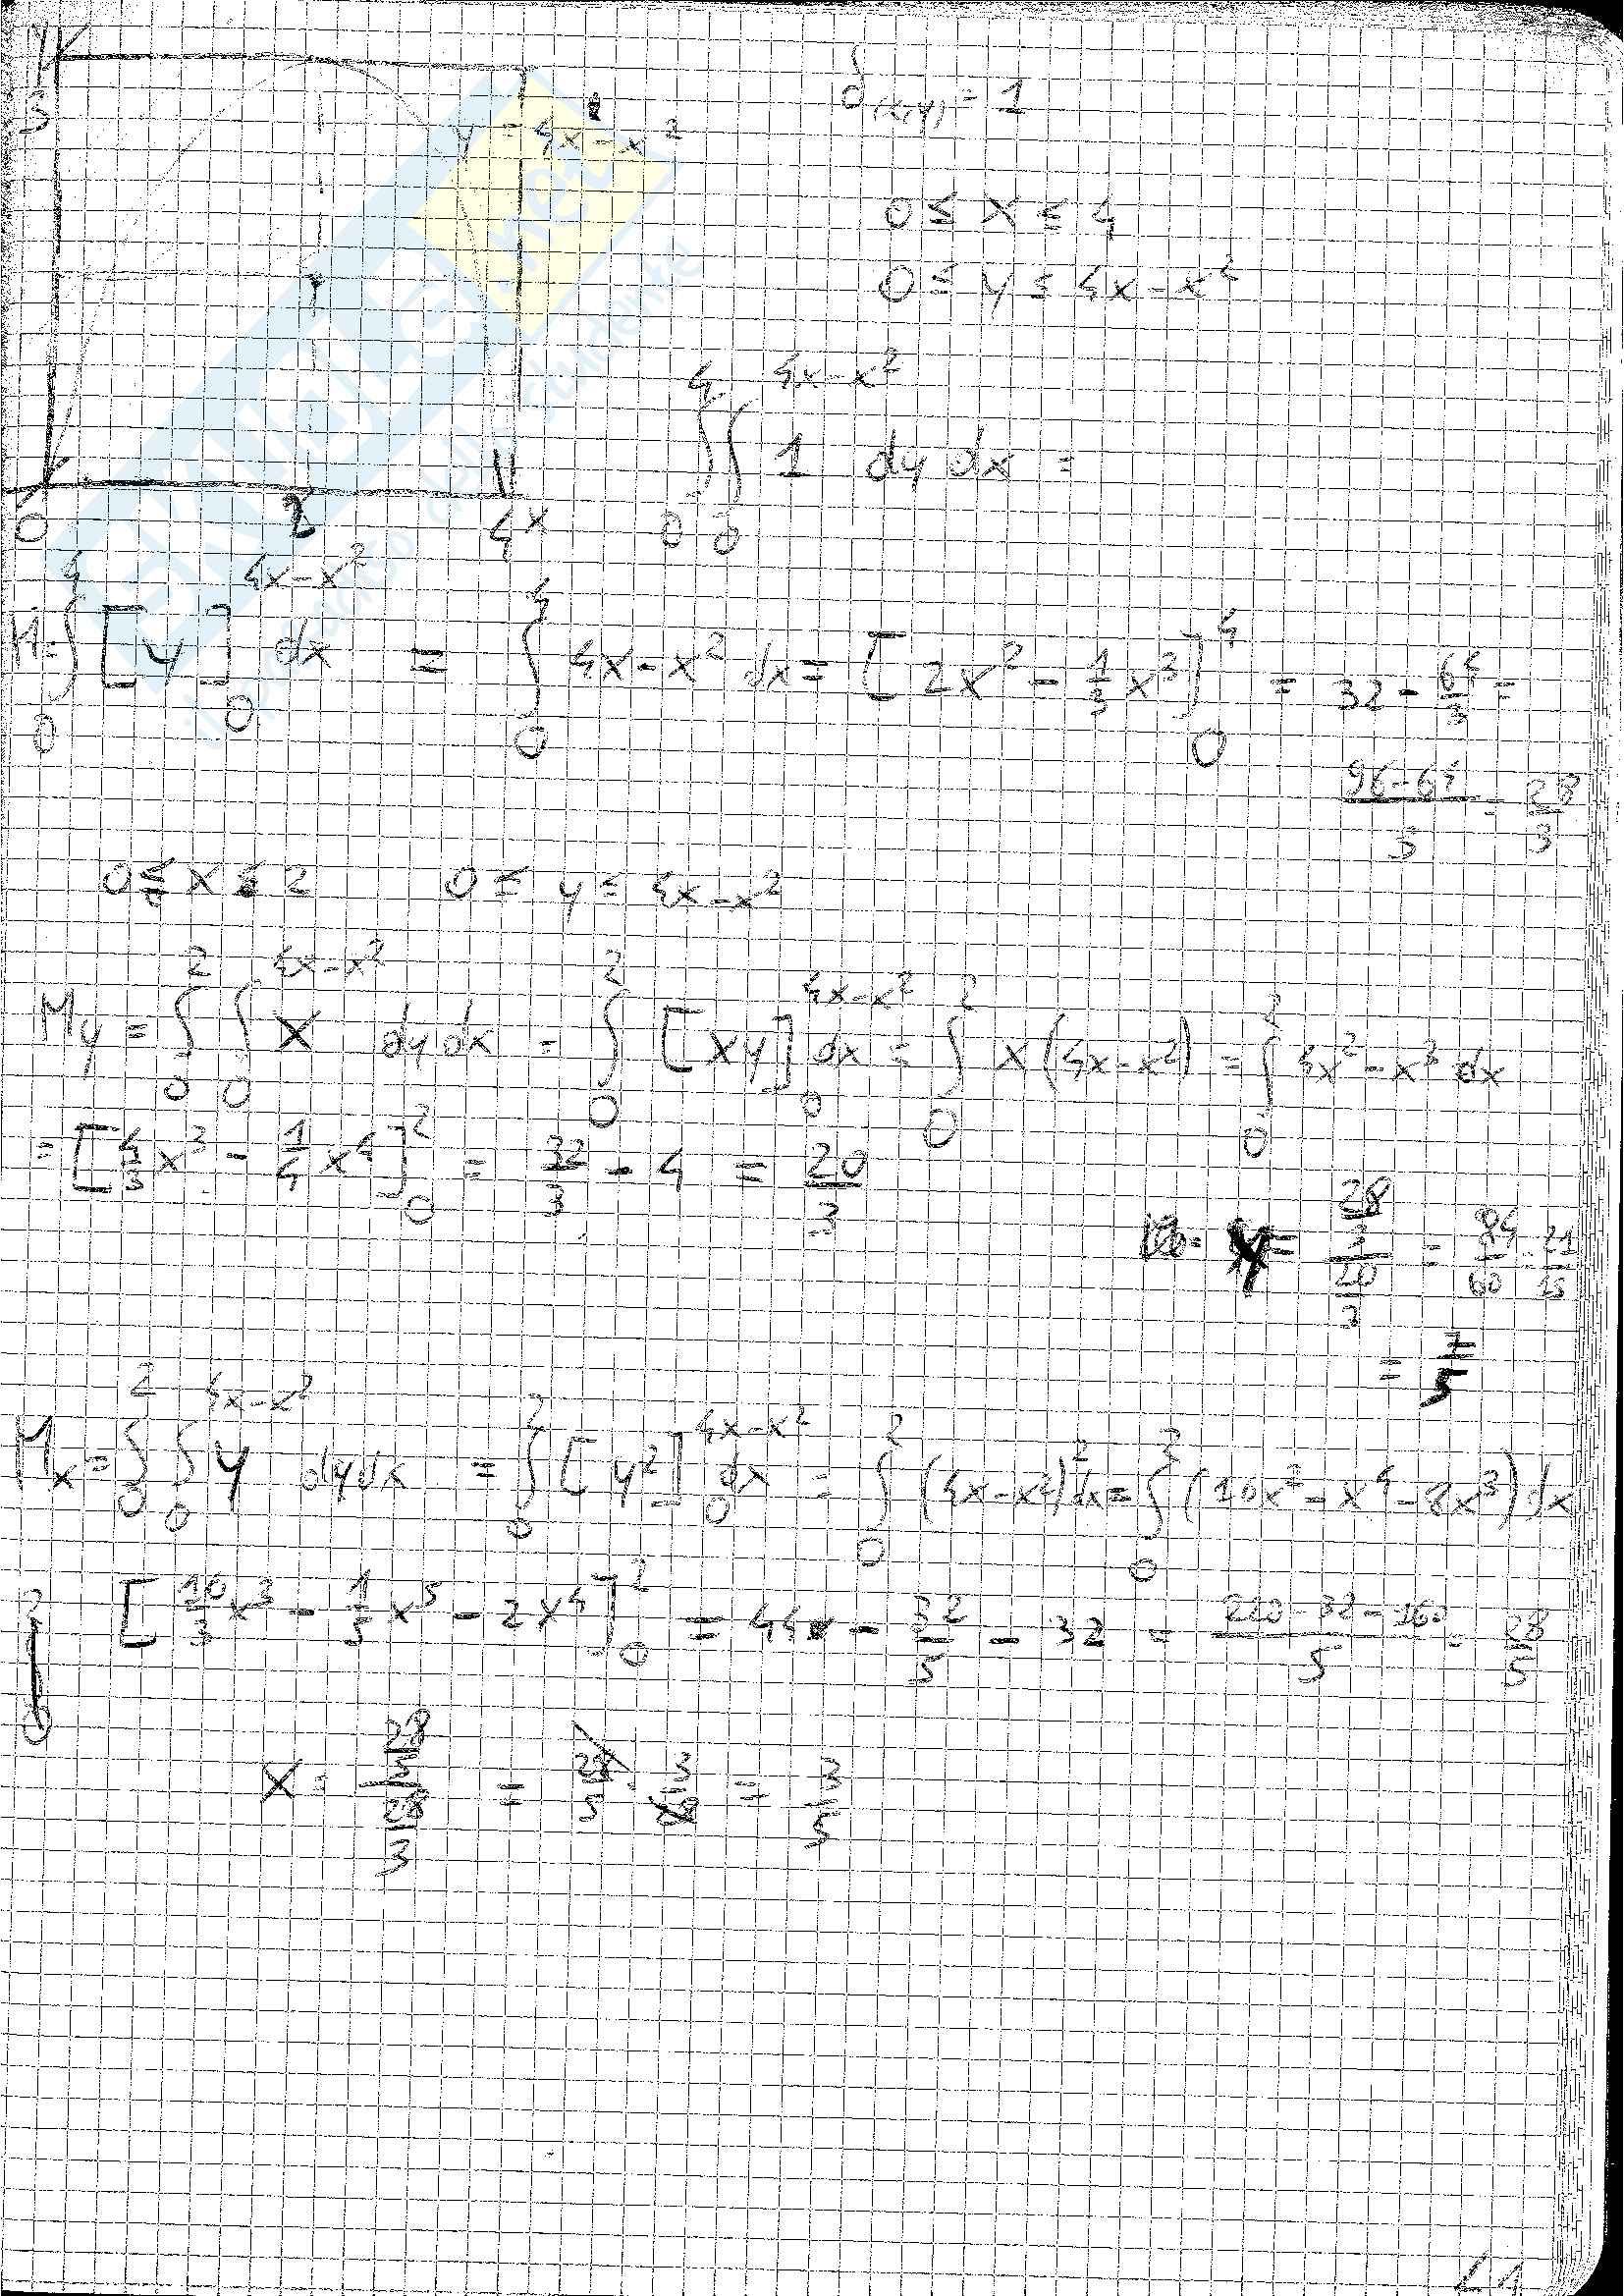 3
y = 4x - x²
δ(x,y) = 1
0 ≤ x ≤ 4
0 ≤ y ≤ 4x - x²
∫₀⁴ ∫₀^(4x-x²) 1 dy dx =
0 2 4 x
M = ∫₀⁴ [y]₀^(4x-x²) dx = ∫₀⁴ 4x - x² dx = [2x² - 1/3 x³]₀⁴ = 32 - 64/3 =
(96-64)/3 = 28/3
0 ≤ x ≤ 2 0 ≤ y ≤ 4x - x²
My = ∫₀² ∫₀^(4x-x²) x dy dx = ∫₀² [xy]₀^(4x-x²) dx = ∫₀² x(4x-x²) = ∫₀² 4x² - x³ dx
= [4/3 x³ - 1/4 x⁴]₀² = 32/3 - 4 = 20/3
y = (28/3)/(20/3) = 84/60 = 21/15
= 7/5
Mx = ∫₀² ∫₀^(4x-x²) y dy dx = ∫₀² [y²]₀^(4x-x²) dx = ∫₀² (4x-x²)² dx = ∫₀² (16x² - x⁴ - 8x³) dx
[16/3 x³ - 1/5 x⁵ - 2x⁴]₀² = 44 - 32/5 - 32 = (220-32-160)/5 = 28/5
x = (28/5)/(28/3) = 28/5 · 3/28 = 3/5